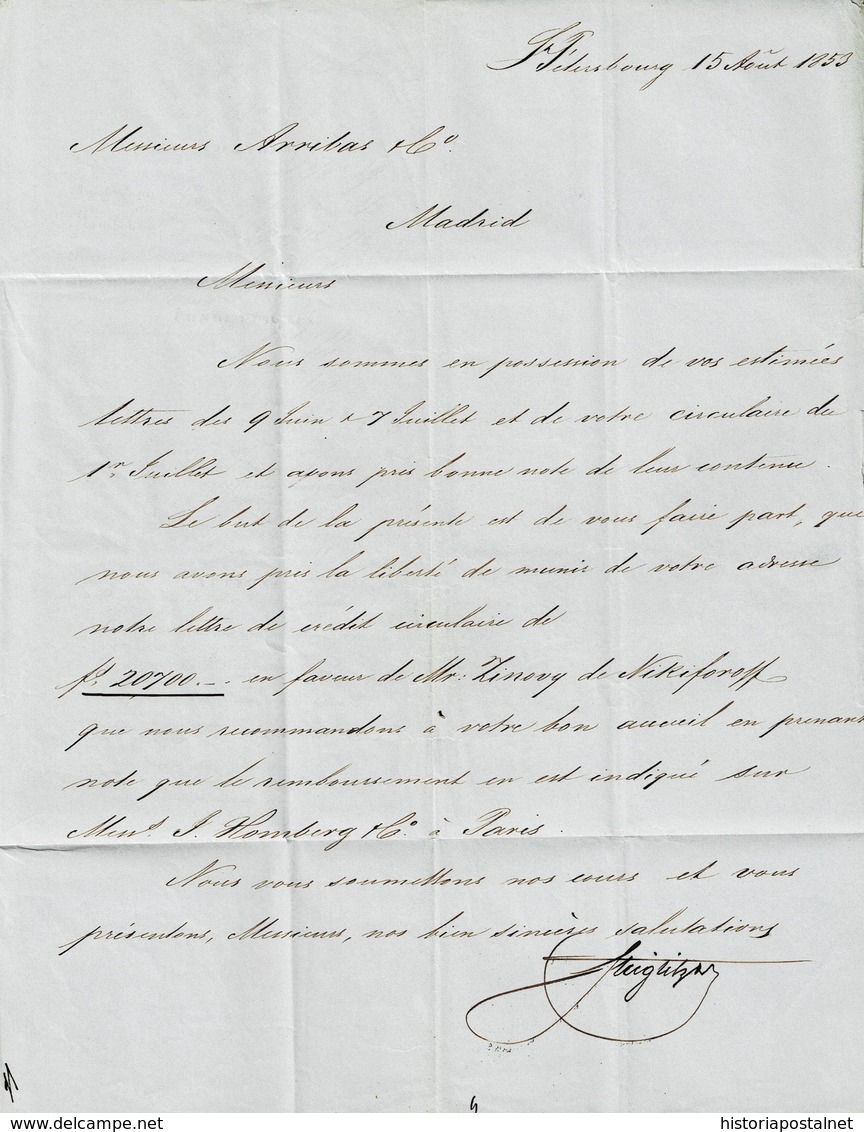 St Pétersbourg 15 Août 1853
Messieurs Arribas & Co.
Madrid
Messieurs
Nous sommes en possession de vos estimées
lettres des 9 Juin & 7 Juillet et de votre circulaire du
1r Juillet et avons pris bonne note de leur contenu.
Le but de la présente est de vous faire part, que
nous avons pris la liberté de munir de votre adresse
notre lettre de crédit circulaire de
fs. 20700.-. en faveur de Mr: Zinovy de Nikiforoff
que nous recommandons à votre bon accueil en prenant
note que le remboursement en est indiqué sur
Messrs. J. Homberg & Co. à Paris.
Nous vous soumettons nos cours et vous
présentons, Messieurs, nos bien sincères salutations
Stieglitz & Co
delcampe.net
historiapostalnet